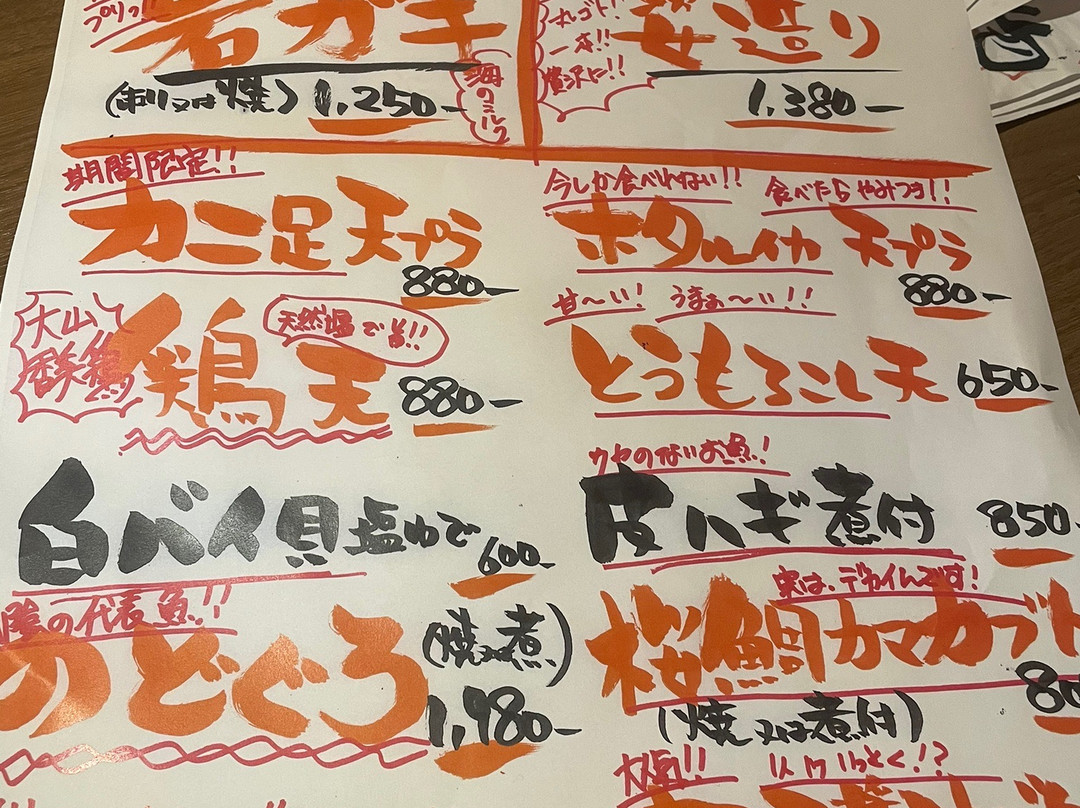 プリっ!!
岩ガキ
(刺又は焼)
1,250-
海のミルク
丸ゴト!
一本!!
贅沢に!!
姿造り
1,380-
期間限定!!
カニ足天プラ
880-
今しか食べれない!!
食べたらやみつき!!
ホタルイカ 天プラ
880-
大山
鶏天
天然塩で旨!!
880-
甘〜い! うまぁ〜い!!
とうもろこし天 650-
白バイ貝塩ゆで 600-
クセのないお魚!
皮ハギ煮付 850-
の代表魚!!
のどぐろ
(焼又は煮)
1,980-
実は、デカイんです!
桜鯛カマカブト
80
(焼又は煮付)
大人気!!